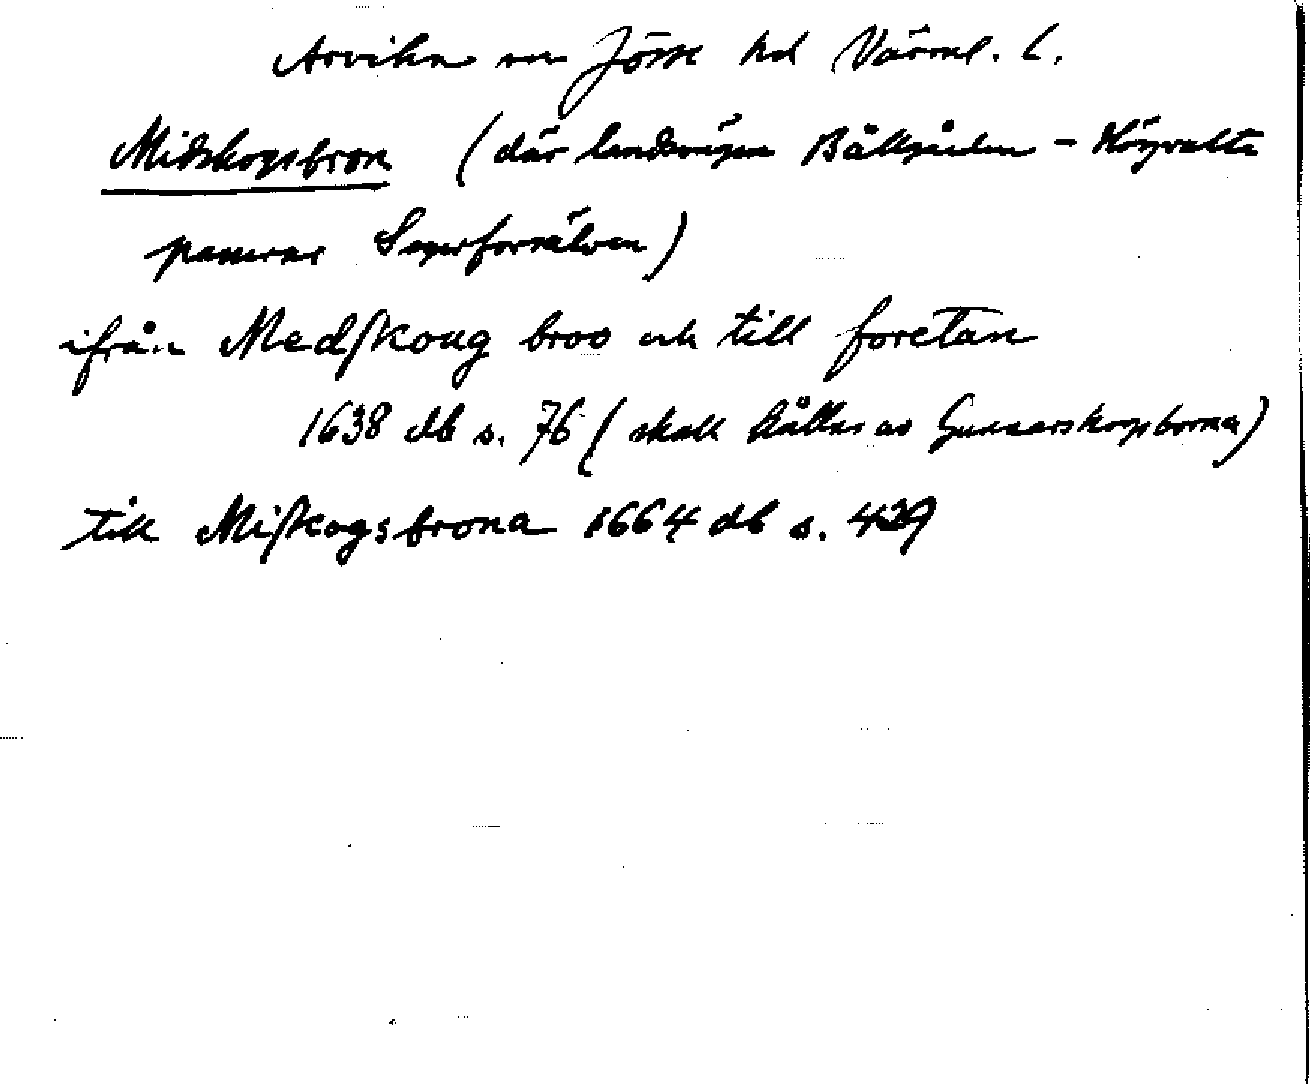 Arvika sn Jösse hd Värml. l.
Midskogsbron (där landsvägen Bällgården – Högvalta
passerar Segerforsälven)
ifrån Medſkoug broo och till foretan
1638 db s. 76 (skall hållas av Gunnarskogsborna)
till Miſkogsbrona 1664 db s. 429